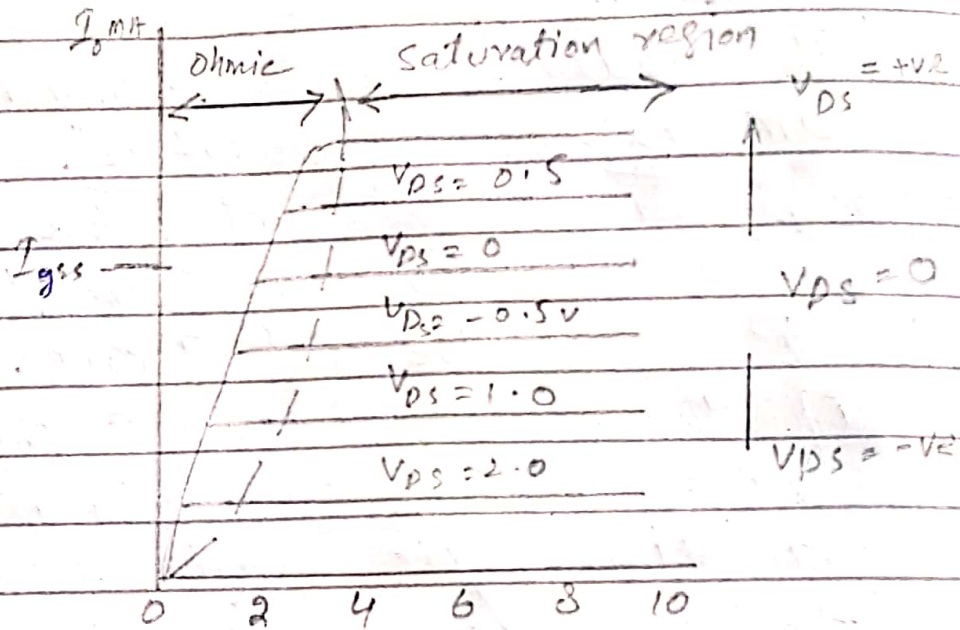 I₀ mA
ohmic saturation region
V_DS = +ve
V_DS = 0.5
I_gss
V_DS = 0
V_DS = 0
V_DS = -0.5v
V_DS = 1.0
V_DS = 2.0
V_DS = -ve
0 2 4 6 8 10